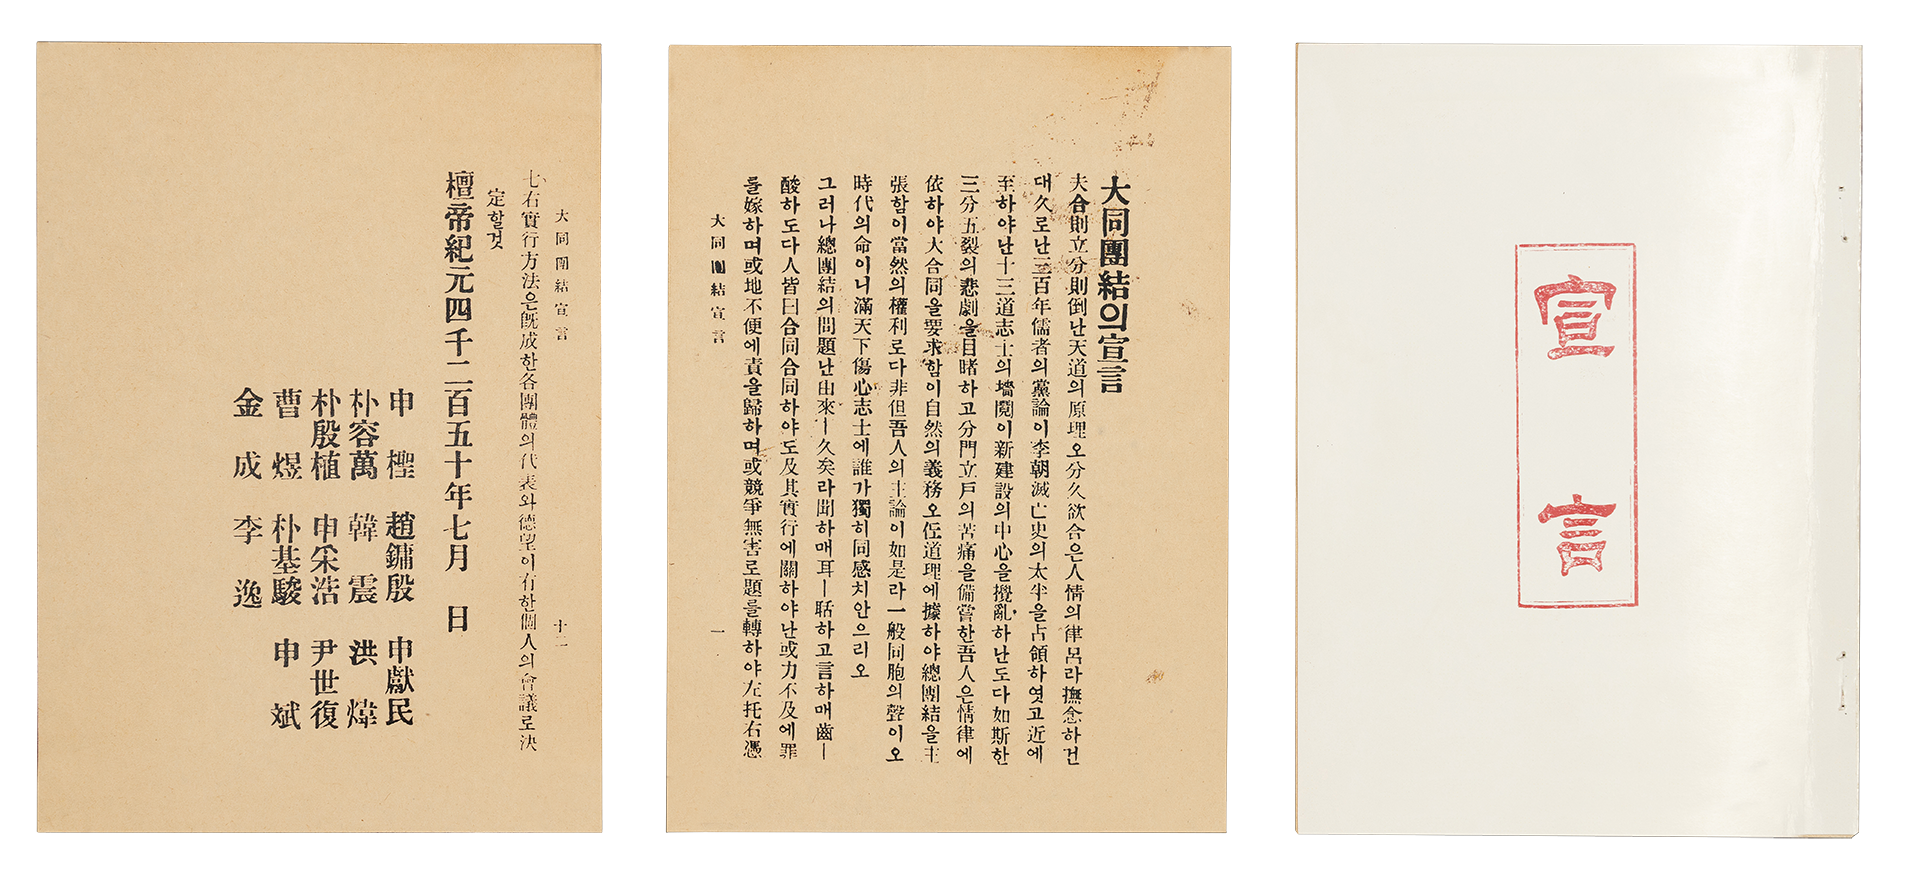 宣言
大同團結의宣言
夫合則立分則倒난天道의原理오分久欲合은人情의律呂라撫念하건
대久로난三百年儒者의黨論이李朝滅亡史의太半을占領하엿고近에
至하야난十三道志士의墻鬩이新建設의中心을攪亂하난도다如斯한
三分五裂의悲劇을目睹하고分門立戶의苦痛을備嘗한吾人은情律에
依하야大合同을要求함이自然의義務오道理에據하야總團結을主
張함이當然의權利로다非但吾人의主論이如是라一般同胞의聲이오
時代의命이니滿天下傷心志士에誰가獨히同感치안으리오
그러나總團結의問題난由來ㅣ久矣라聞하매耳ㅣ聒하고言하매齒ㅣ
酸하도다人皆曰合同合同하야도及其實行에關하야난或力不及에罪
를嫁하며或地不便에責을歸하며或競爭無害로題를轉하야左托右憑
大同團結宣言 一
大同團結宣言 十二
七右實行方法은旣成한各團體의代表와德望이有한個人의會議로決
定할것
檀帝紀元四千二百五十年七月 日
申 檉 趙鏞殷 申獻民
朴容萬 韓 震 洪 煒
朴殷植 申采浩 尹世復
曹 煜 朴基駿 申 斌
金 成 李 逸